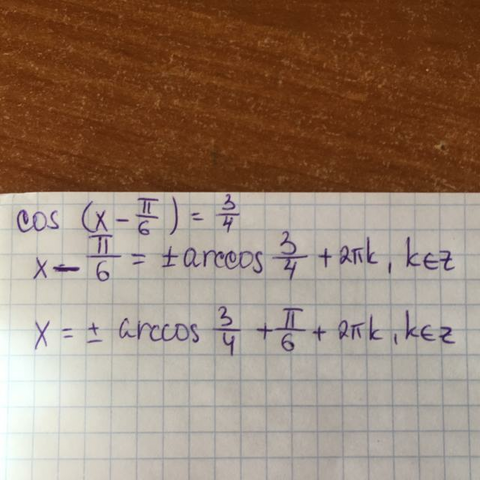 cos (x - π/6) = 3/4
x - π/6 = ± arccos 3/4 + 2πk, k∈z
x = ± arccos 3/4 + π/6 + 2πk, k∈z